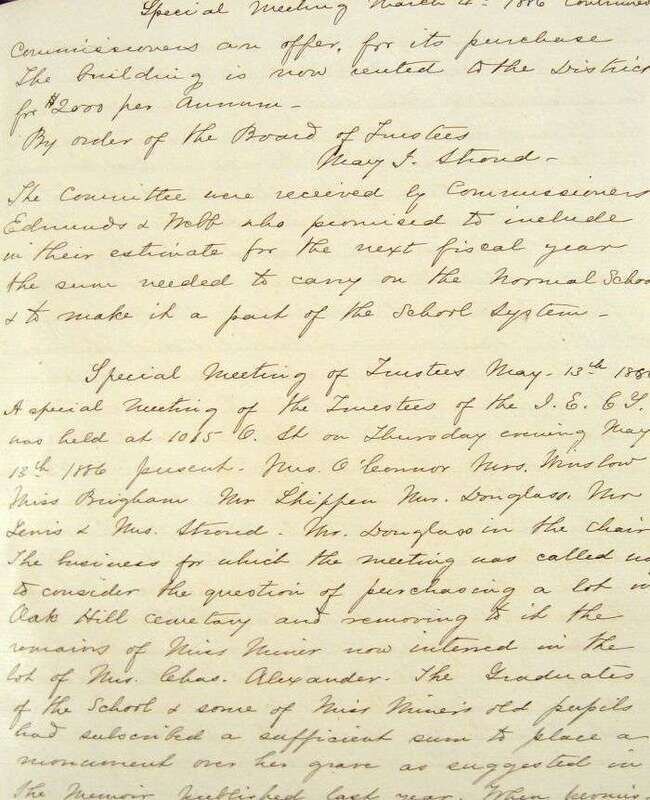 Special Meeting March 4th 1886 Continued
Commissioners an offer, for its purchase
The building is now rented to the District
for $2000 per Annum -
By order of the Board of Trustees
Mary J. Stroud -
The Committee were received by Commissioners
Edmunds & Webb who promised to include
in their estimate for the next fiscal year
the sum needed to carry on the Normal School
& to make it a part of the School System -
Special Meeting of Trustees May - 13th 1886
A special Meeting of the Trustees of the I. E. C Y.
was held at 1015 O. St on Thursday evening May
13th 1886 present - Mrs. O'Connor Mrs. Winslow
Miss Brigham Mr Shippen Mr. Douglass. Mr
Lewis & Mrs. Stroud. Mr. Douglass in the Chair
The business for which the meeting was called was
to consider the question of purchasing a lot in
Oak Hill cemetary and removing to it the
remains of Miss Miner now interred in the
lot of Mrs. Chas. Alexander. The Graduates
of the School & some of Miss Miner's old pupils
had subscribed a sufficient sum to place a
monument over her grave as suggested in
the Memoir published last year. When